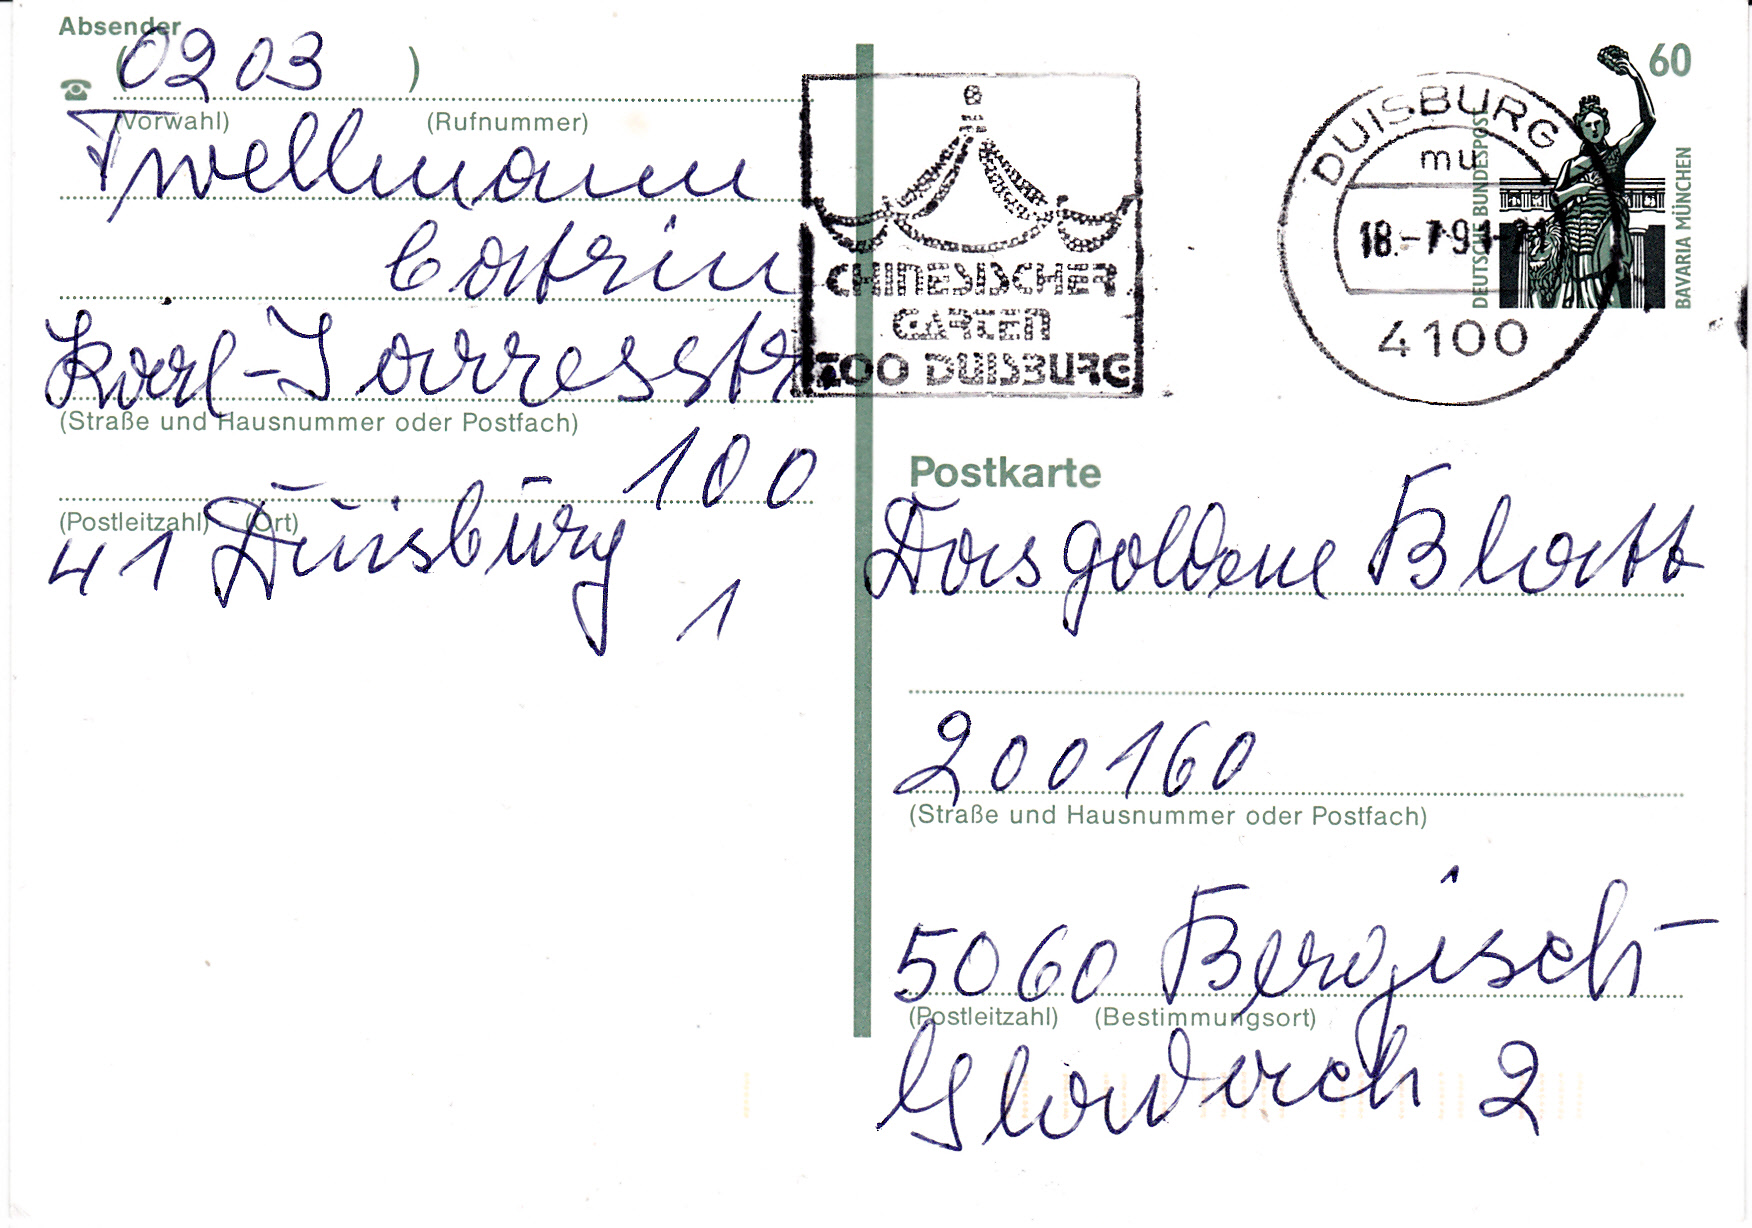 Absender
(0203 )
(Vorwahl) (Rufnummer)
Twellmann
Catrin
Karl-Jarresstr
(Straße und Hausnummer oder Postfach)
100
(Postleitzahl) (Ort)
41 Duisburg
1
CHINESISCHER
GARTEN
ZOO DUISBURG
DUISBURG
mu
18.-7.91-21
4100
60
DEUTSCHE BUNDESPOST
BAVARIA MÜNCHEN
Postkarte
Das goldene Blatt
200160
(Straße und Hausnummer oder Postfach)
5060 Bergisch-
(Postleitzahl) (Bestimmungsort)
Gladbach 2